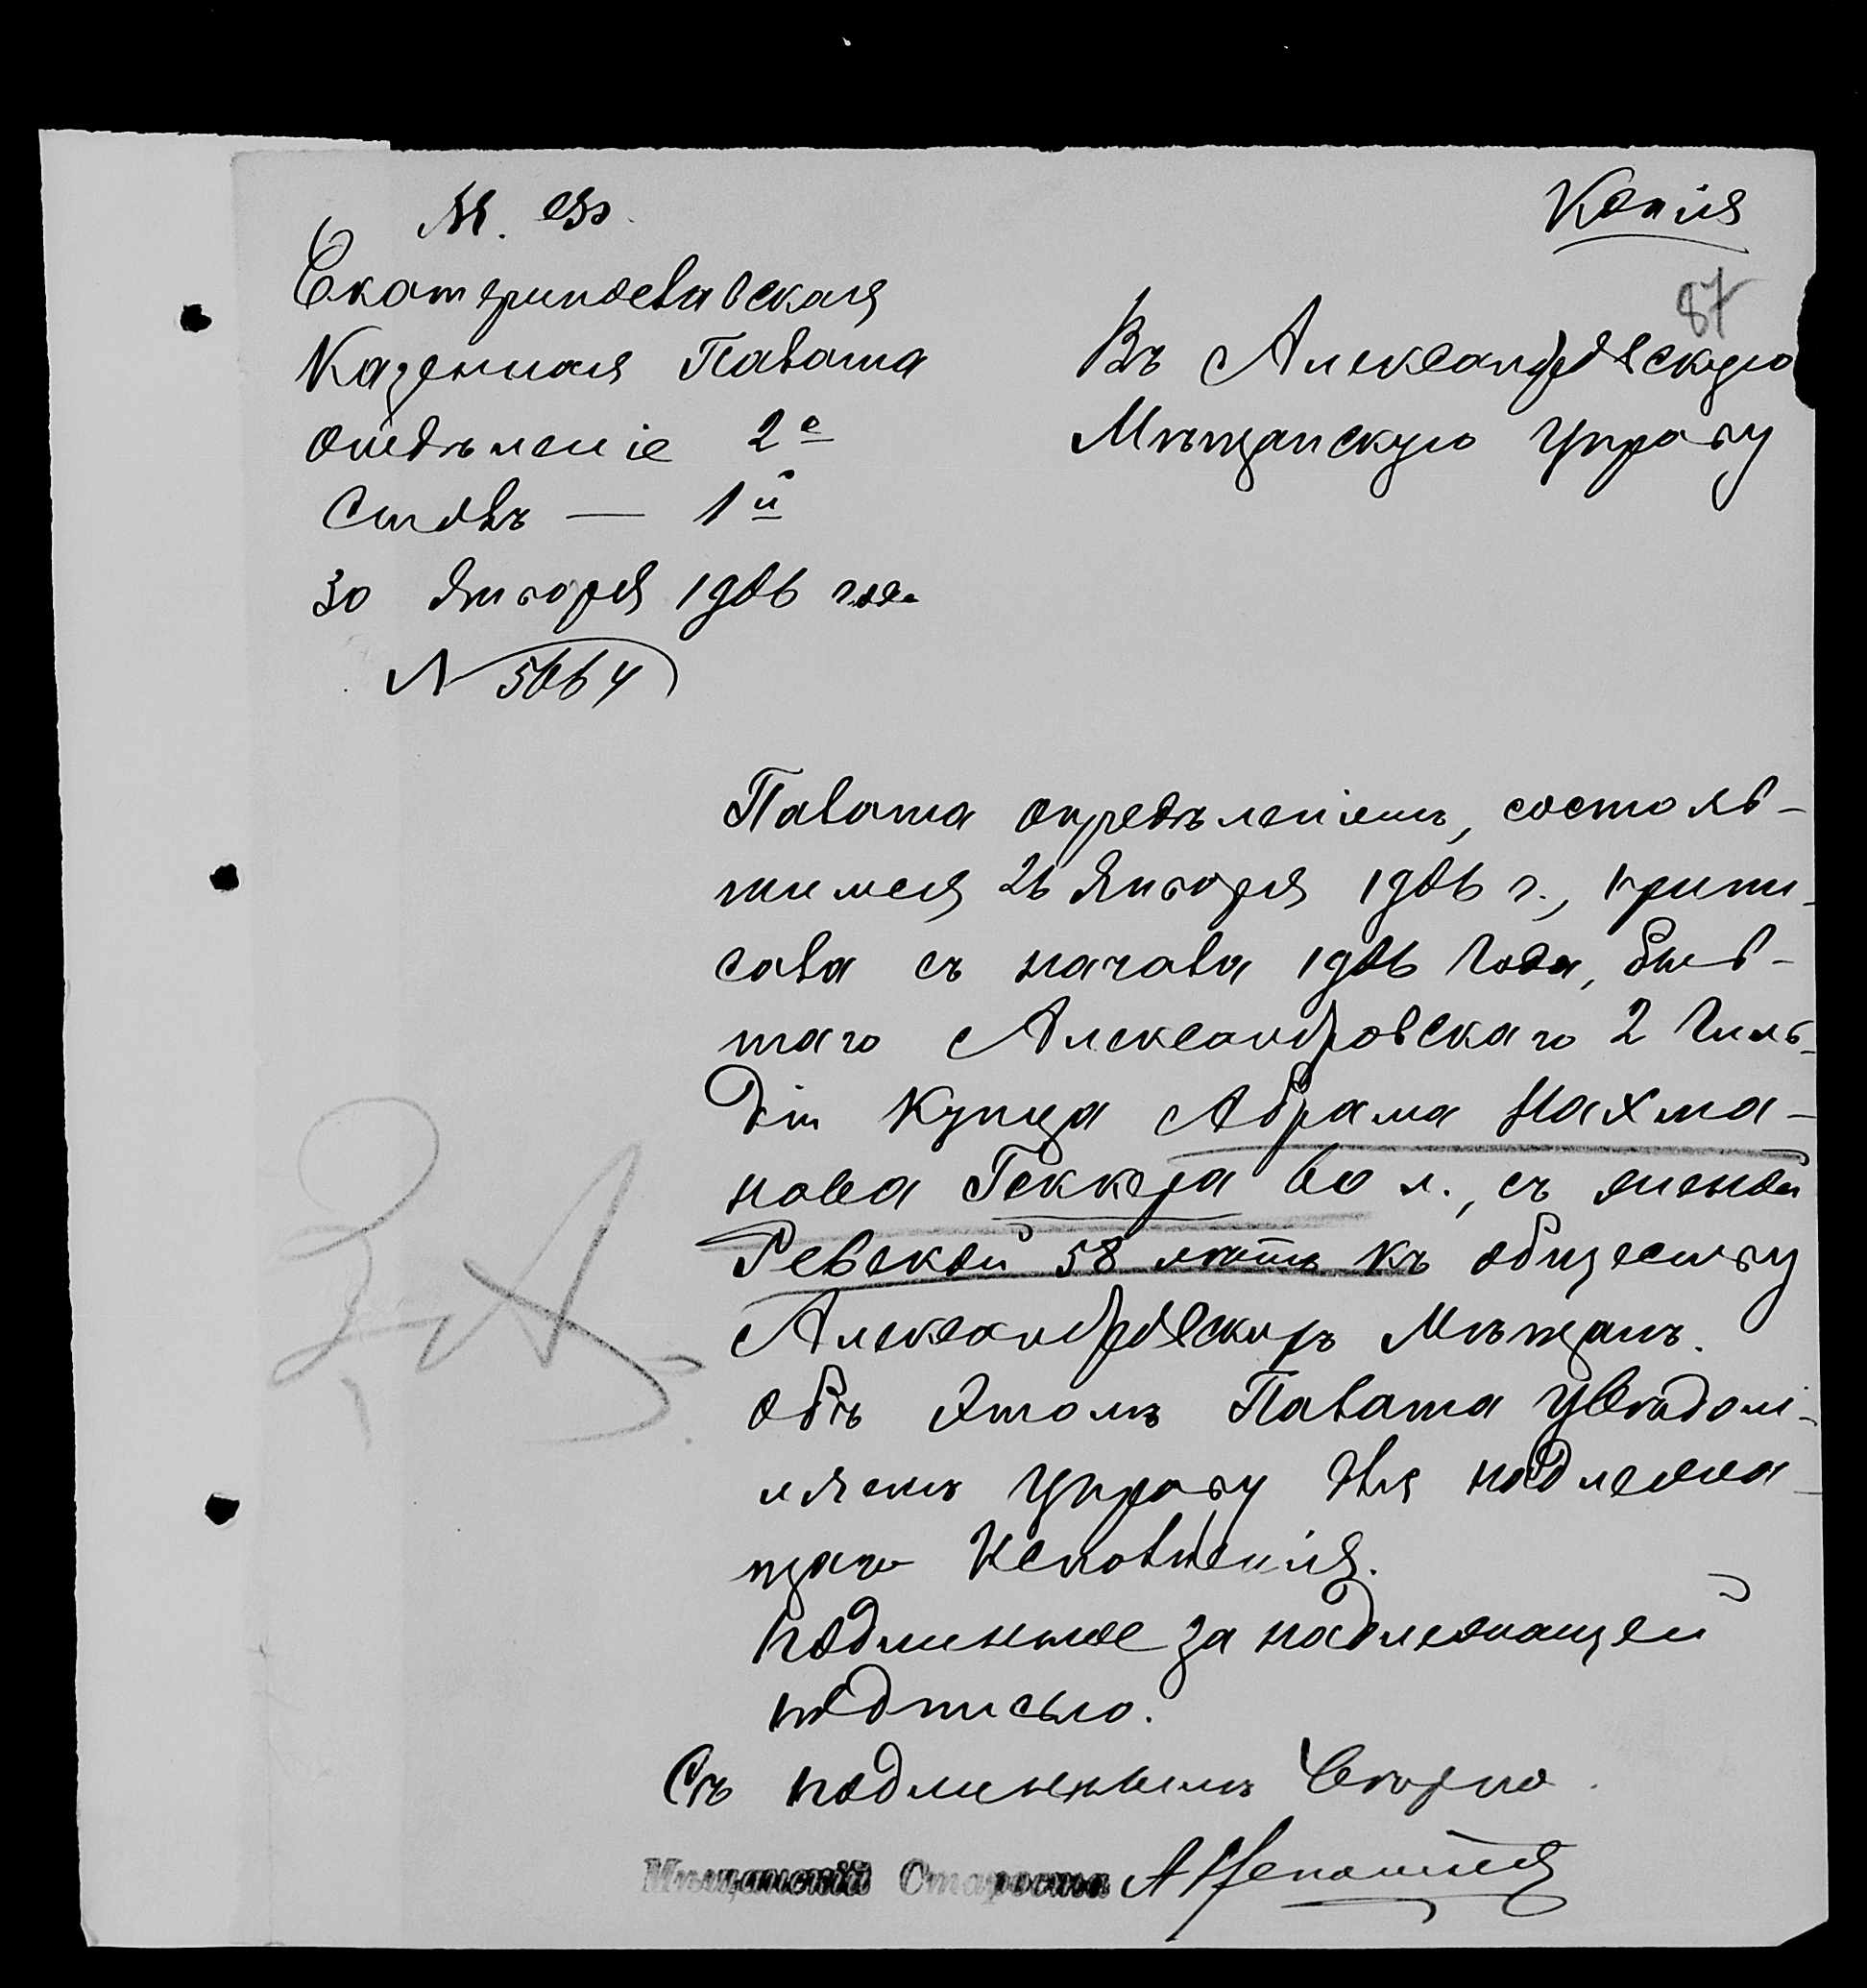 М. Ф.
Копія
87
Екатеринославская
Казенная Палата
Отдѣленіе 2е
Столъ — 1й
30 Января 1906 года
N 5664
Въ Александровскую
Мѣщанскую Управу
Палата опредѣленіемъ, состояв-
шимся 26 Января 1906 г., припи-
сала съ начала 1906 года, быв-
шаго Александровскаго 2 гиль-
діи купца Абрама Нахма-
нова Геккера 60 л., съ женой
Ревекой 58 лѣтъ къ обществу
Александровскихъ Мѣщанъ.
Объ этомъ Палата увѣдом-
ляетъ Управу для надлежа-
щаго исполненія.
Подлинное за надлежащей
подписью.
Съ подлиннымъ вѣрно.
Мѣщанскій Староста